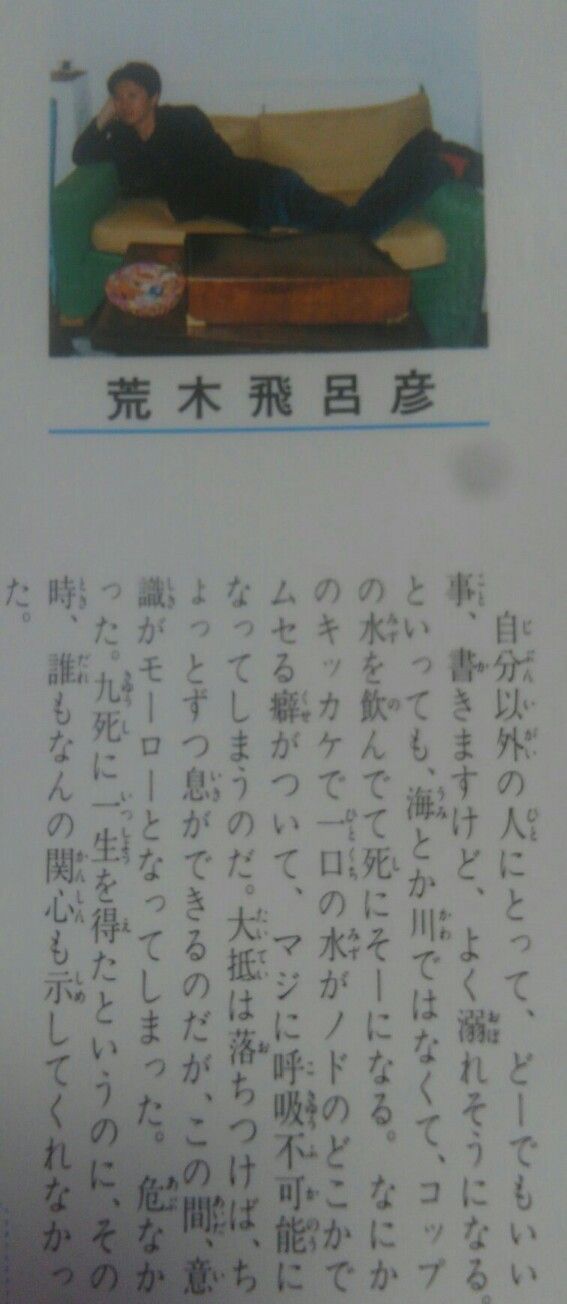 荒木飛呂彦
自分以外の人にとって、どーでもいい
事、書きますけど、よく溺れそうになる。
といっても、海とか川ではなくて、コップ
の水を飲んでて死にそーになる。なにか
のキッカケで一口の水がノドのどこかで
ムセる癖がついて、マジに呼吸不可能に
なってしまうのだ。大抵は落ちつけば、ち
ょっとずつ息ができるのだが、この間、意
識がモーローとなってしまった。危なか
った。九死に一生を得たというのに、その
時、誰もなんの関心も示してくれなかっ
た。